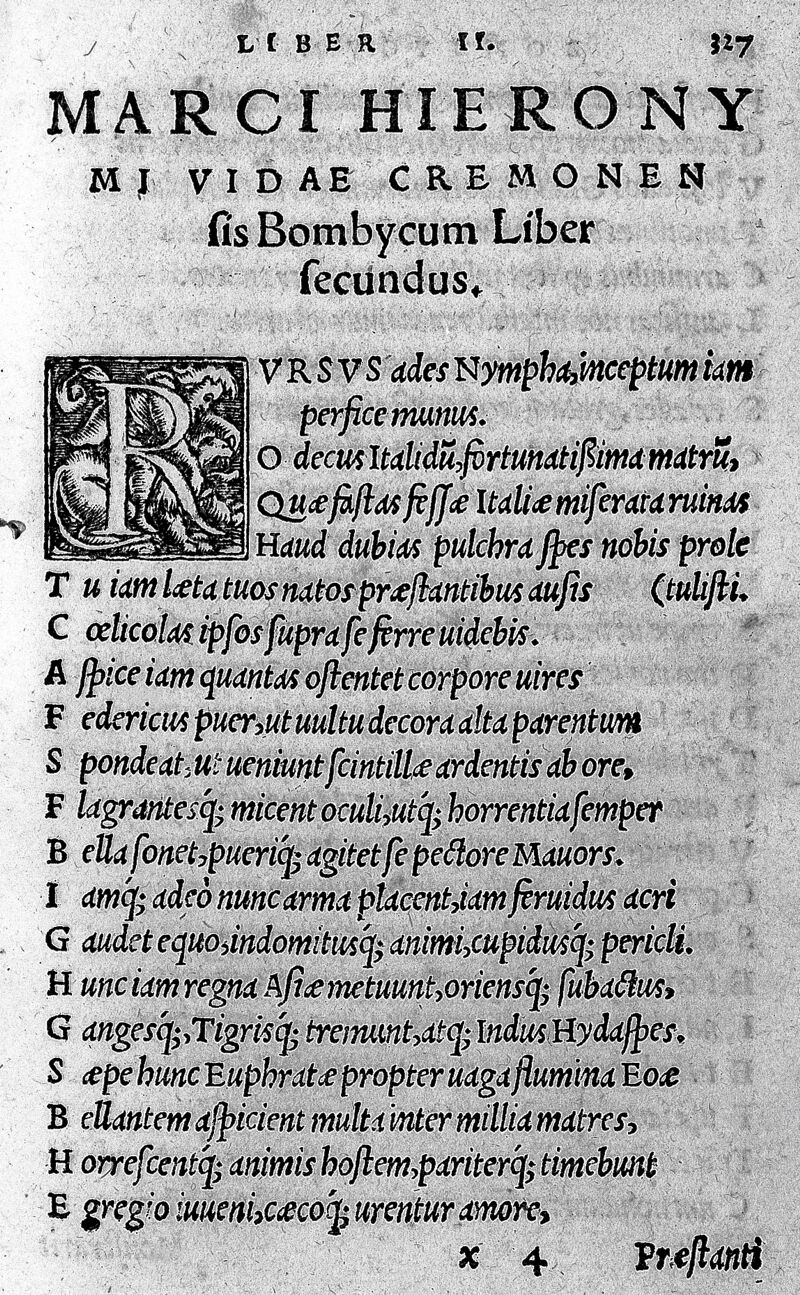 LIBER II. 327
MARCI HIERONY
MI VIDAE CREMONEN
ſis Bombycum Liber
ſecundus.
RVRSVS ades Nympha,inceptum iam
perfice munus.
O decus Italidũ,fortunatißima matrũ,
Quæ faſtas feſſæ Italiæ miſerata ruinas
Haud dubias pulchra ſpes nobis prole
Tu iam læta tuos natos præſtantibus auſis (tuliſti.
Cœlicolas ipſos ſupra ſe ferre uidebis.
Aſpice iam quantas oſtentet corpore uires
Federicus puer,ut uultu decora alta parentum
Spondeat,ut ueniunt ſcintillæ ardentis ab ore,
Flagrantesq́; micent oculi,utq́; horrentia ſemper
Bella ſonet,pueriq́; agitet ſe pectore Mauors.
Iamq́; adeò nunc arma placent,iam feruidus acri
Gaudet equo,indomitusq́; animi,cupidusq́; pericli.
Hunc iam regna Aſiæ metuunt,oriensq́; ſubactus,
Gangesq́;,Tigrisq́; tremunt,atq; Indus Hydaſpes.
Sæpe hunc Euphratæ propter uaga flumina Eoæ
Bellantem aſpicient multa inter millia matres,
Horreſcentq́; animis hoſtem,pariterq́; timebunt
Egregio iuueni,cæcoq́; urentur amore,
x 4 Præſtanti